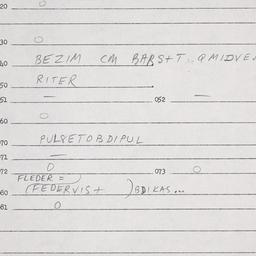 20 0
30 0
40 BEZIM CM BARS+T.. QMIDVE
50 RITER
51 — 052 —
60 0
70 PULPETOBDIPUL
71 —
72 0 073 0
FLEDER =
60 (FEDERVIS+ )BDIKAS...
61 0